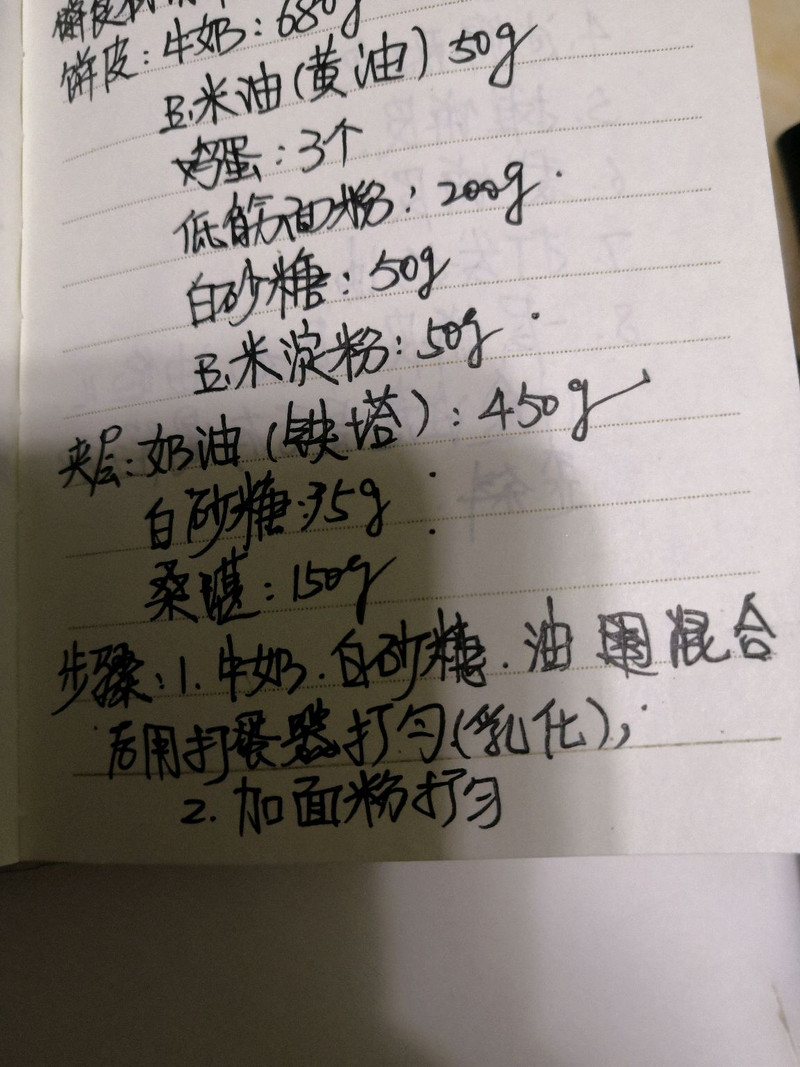 饼皮:牛奶:680g
玉米油(黄油)50g
鸡蛋:3个
低筋面粉:200g.
白砂糖:50g
玉米淀粉:50g.
夹层:奶油(铁塔):450g
白砂糖:35g
桑葚:150g
步骤:1.牛奶.白砂糖.油 混合
后用打蛋器打匀(乳化);
2.加面粉打匀